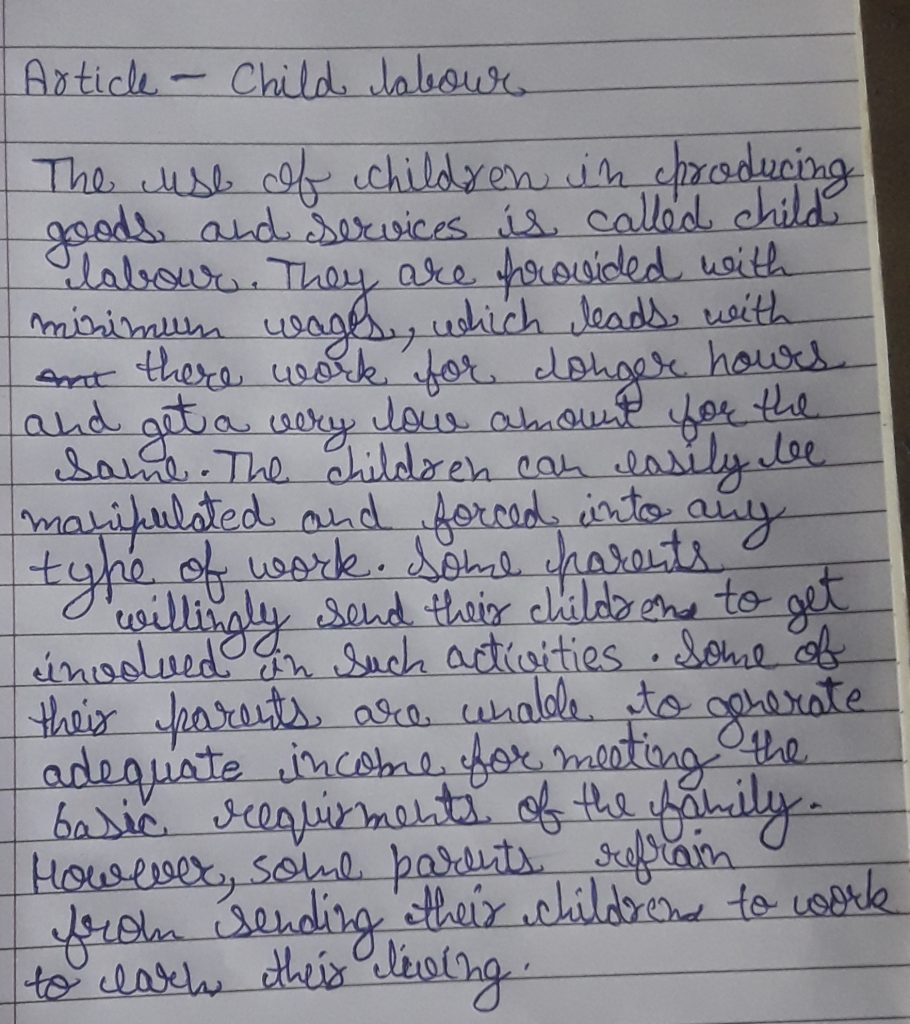 Article - Child labour
The use of children in producing
goods and services is called child
labour. They are provided with
minimum wages, which leads with
there work for longer hours
and get a very low amount for the
same. The children can easily be
manipulated and forced into any
type of work. Some parents
willingly send their children to get
involved in such activities. Some of
their parents are unable to generate
adequate income for meeting the
basic requirments of the family.
However, some parents refrain
from sending their children to work
to earn their living.